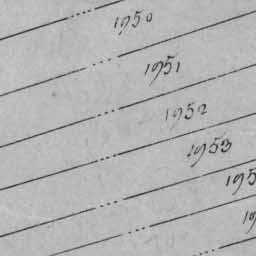 1950
1951
1952
1953
195
19